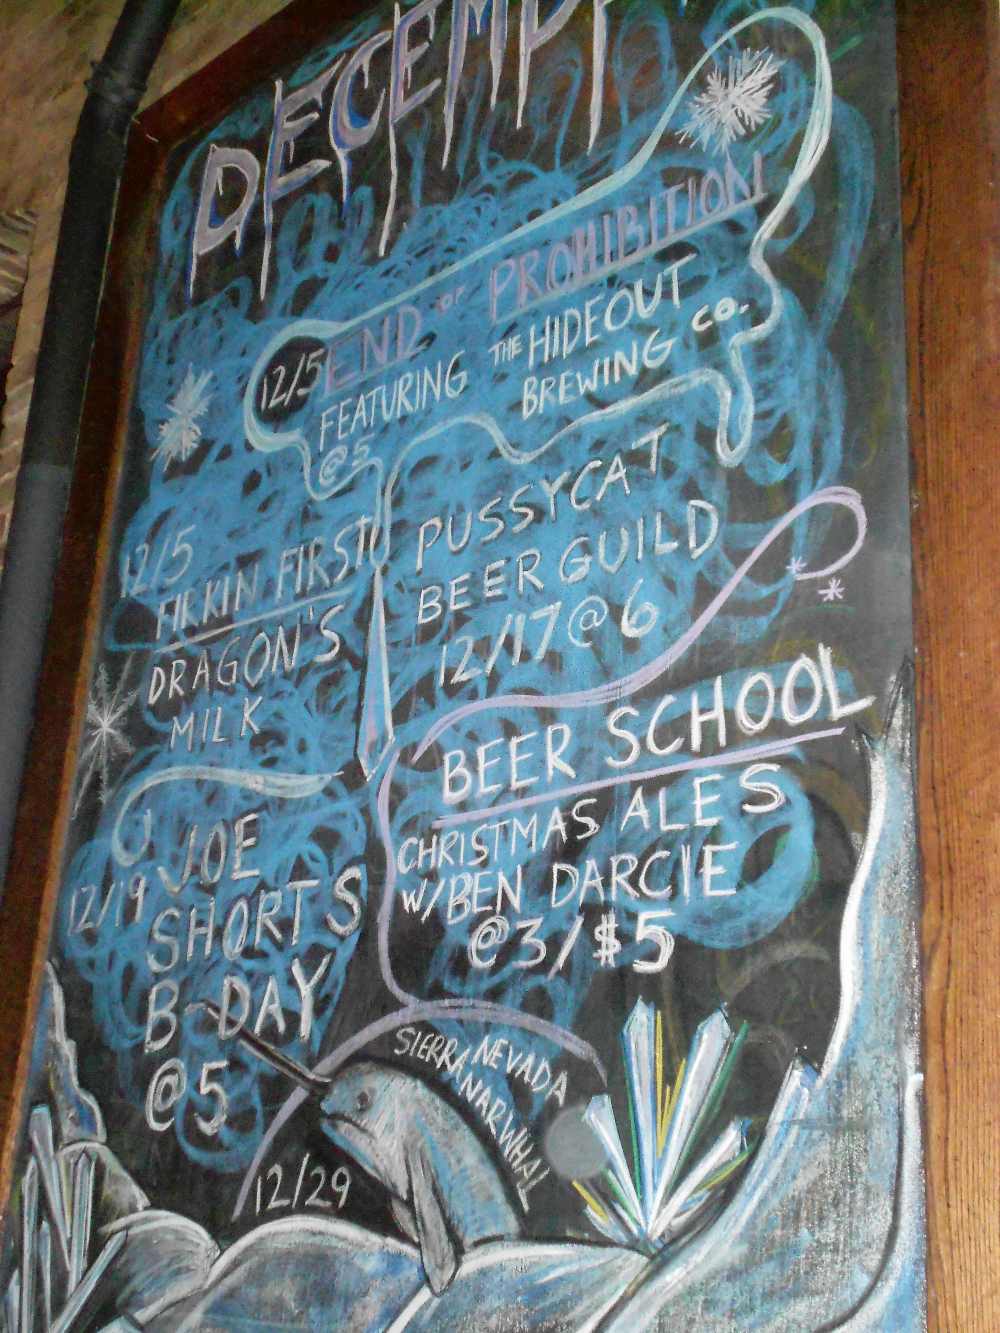 DECEMB
12/5 END OF PROHIBITION
FEATURING THE HIDEOUT
@ 5 BREWING CO.
12/5
FIRKIN FIRST
DRAGON'S
MILK
PUSSYCAT
BEER GUILD
12/17 @ 6
BEER SCHOOL
CHRISTMAS ALES
W/BEN DARCIE
@ 3 / $5
12/19 JOE
SHORTS
B-DAY
@ 5
SIERRA NEVADA
NARWHAL
12/29